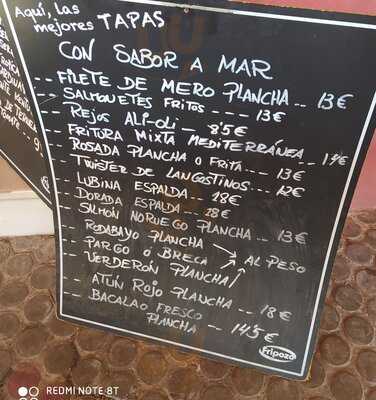 Aquí, Las
mejores TAPAS
CON SABOR A MAR
-- FILETE DE MERO PLANCHA -- 13€
-- SALMONETES FRITOS ---- 13€
-- REJOS ALI-OLI - 8'5€
-- FRITURA MIXTA MEDITERRÁNEA -- 14€
-- ROSADA PLANCHA O FRITA --- 13€
-- TWISTER DE LANGOSTINOS --- 12€
-- LUBINA ESPALDA 18€
-- DORADA ESPALDA -- 18€
-- SALMÓN NORUEGO PLANCHA -- 13€
-- RODABAYO PLANCHA
-- PARGO O BRECA → AL PESO
-- VERDERON PLANCHA
-- ATUN ROJO PLANCHA -- 18€
-- BACALAO FRESCO
PLANCHA -- 14'5€
Fripozo
REDMI NOTE 8T